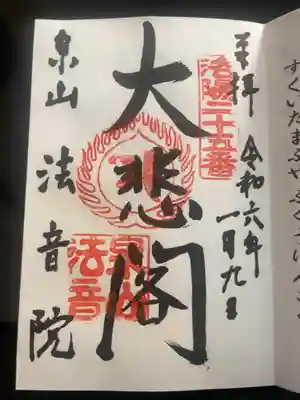 奉拝 令和六年一月九日
洛陽二十五番
大悲閣
泉山
法音
泉山 法音院
すくいたまふや